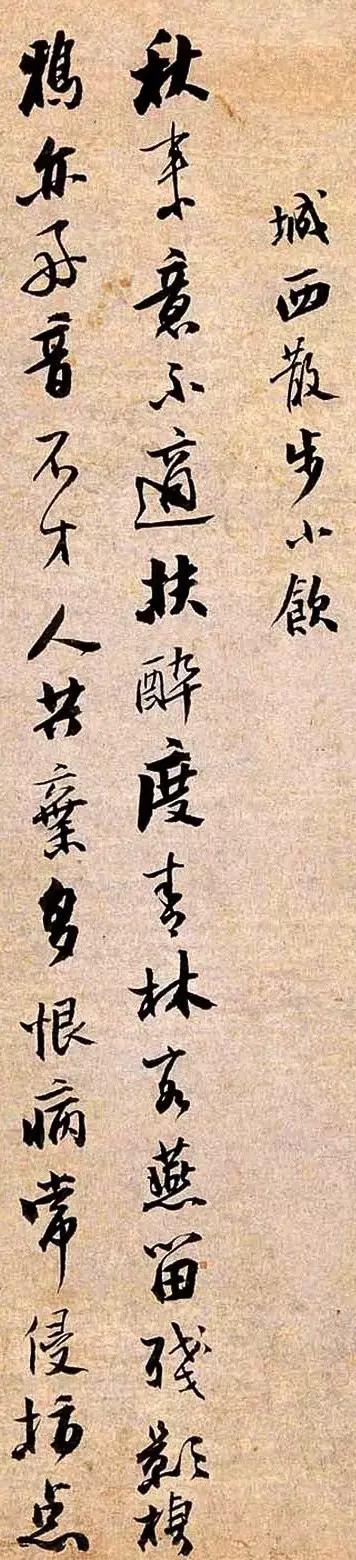 城西散步小飲
秋来意不適扶醉度青林客燕留殘影
鴉亦好音不才人共棄多恨病常侵指点